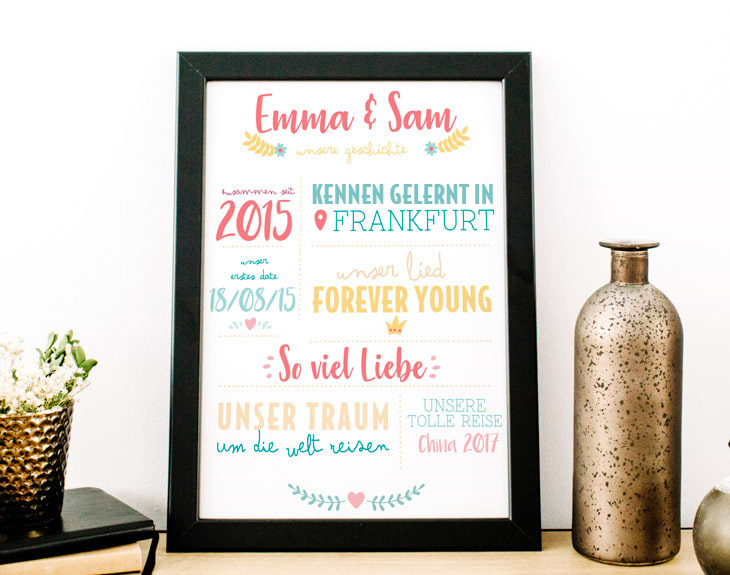 Emma & Sam
unsere geschichte
zusammen seit
2015
KENNEN GELERNT IN
FRANKFURT
unser
erstes date
18/08/15
unser lied
FOREVER YOUNG
So viel Liebe
UNSER TRAUM
um die welt reisen
UNSERE
TOLLE REISE
China 2017